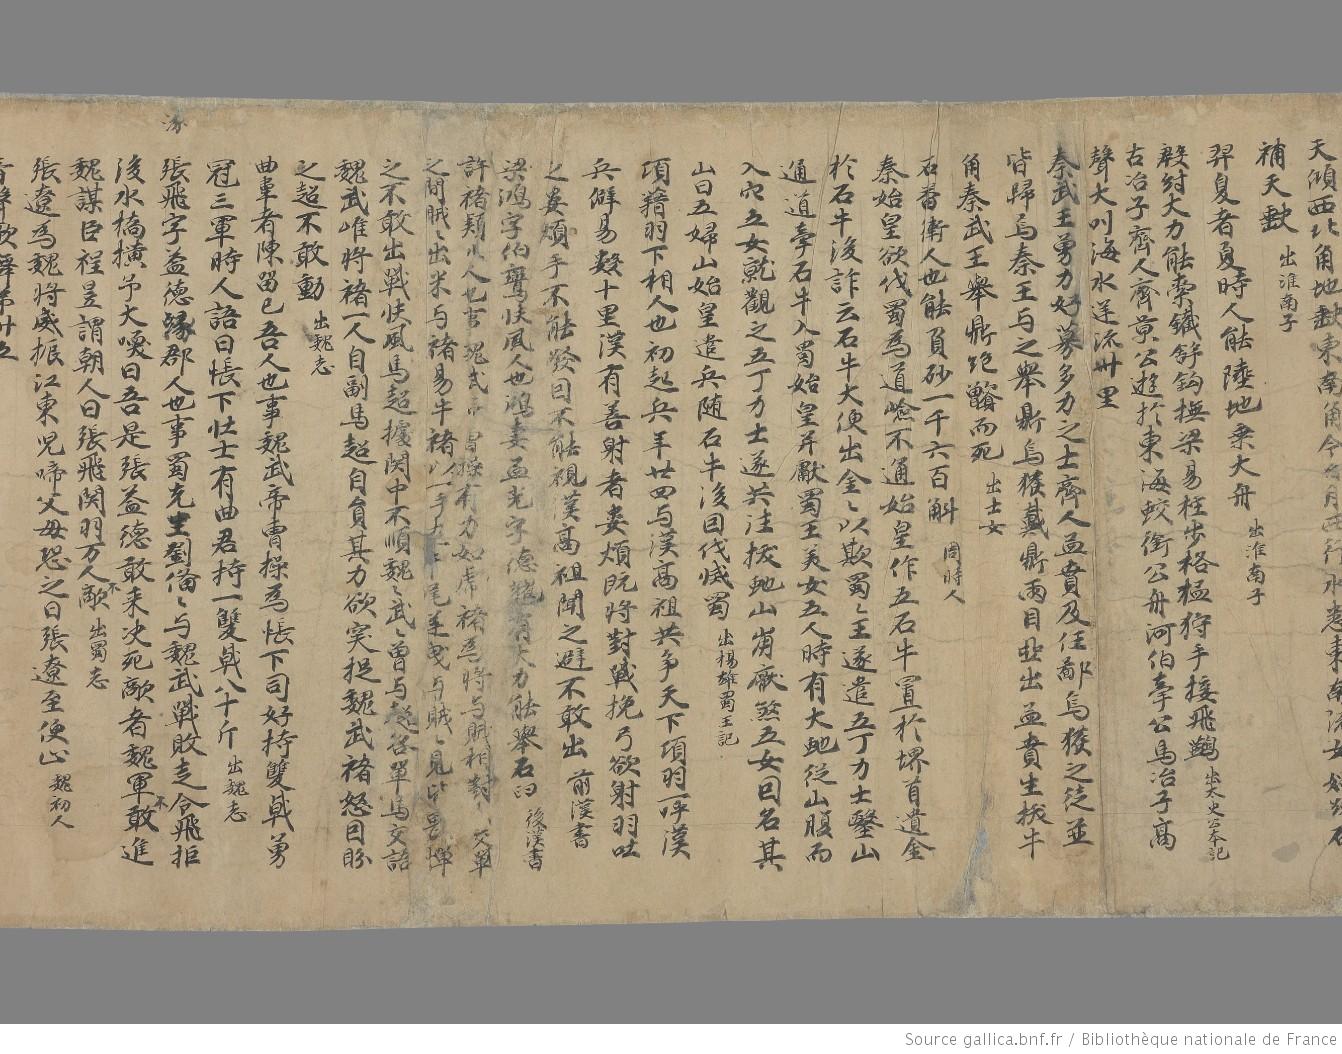 天傾西北角地缺東南角令
補天缺 出淮南子
羿夏者夏時人能陸地乘大舟 出淮南子
殷紂大力能索鐵舒鈎撫梁易柱步格猛狩手接飛 出太史公本記
古冶子齊人齊景公遊於東海蛟銜公舟河伯牽公馬冶子高
聲大叫海水逆流卅里
秦武王勇力好募多力之士齊人孟賁及任鄙烏獲之徒並
皆歸焉秦王与之舉鼎烏獲戴鼎兩目出孟賁生拔牛
角秦武王舉鼎絕而死 出士女
石番衛人也能負砂一千六百斛 周時人
秦始皇欲伐蜀為道嶮不通始皇作五石牛置於堺首遺金
於石牛後詐云石牛大便出金〻以欺蜀〻王遂遣五丁力士鑿山
通道牽石牛入蜀始皇并厭蜀王美女五人時有大虵從山腹而
入穴五女就觀之五丁力士遂共注拔虵山崩厭煞五女因名其
山曰五婦山始皇遣兵随石牛後因伐滅蜀 出楊雄蜀王記
項籍羽下相人也初起兵年廿四与漢高祖共争天下項羽一呼漢
兵僻易數十里漢有善射者婁煩既將對戰挽弓欲射羽吐
之婁煩手不能發目不能視漢高祖聞之避不敢出 前漢書
梁鴻字伯鸞扶風人也鴻妻孟光字德有大力能舉石臼 後漢書
許褚人也有力如虎褚為將与賊相對交單
之間賊〻出米与褚易牛褚以一手牛尾曳与賊〻見皆畏憚
之不敢出戰扶風馬超據関中不順魏〻武〻曾与超各單馬交語
魏武唯將褚一人自副馬超自負其力欲突捉魏武褚怒目盼
之超不敢動 出魏志
曲韋者陳留巳吾人也事魏武帝曹操為悵下司好持雙戟勇
冠三軍時人語曰悵下壮士有曲君持一雙戟八十斤 出魏志
張飛字益德緣郡人也事蜀先主劉俻〻与魏武戰敗走令飛拒
涿
後水橋橫矛大喚曰吾是張益德敢来决死敵者魏軍不敢進
魏謀臣程昱謂朝人曰張飛関羽万人不敵 出蜀志
張遼為魏將威振江東兒啼父母恐之曰張遼至便止 魏初人
歌舞第卅五
Source gallica.bnf.fr / Bibliothèque nationale de France